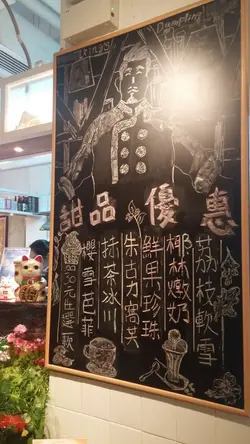 Dumpling
甜品優惠
荔枝軟雪
椰林燉奶
鮮果珍珠
朱古力窩芙
抹茶冰川
櫻雪芭菲